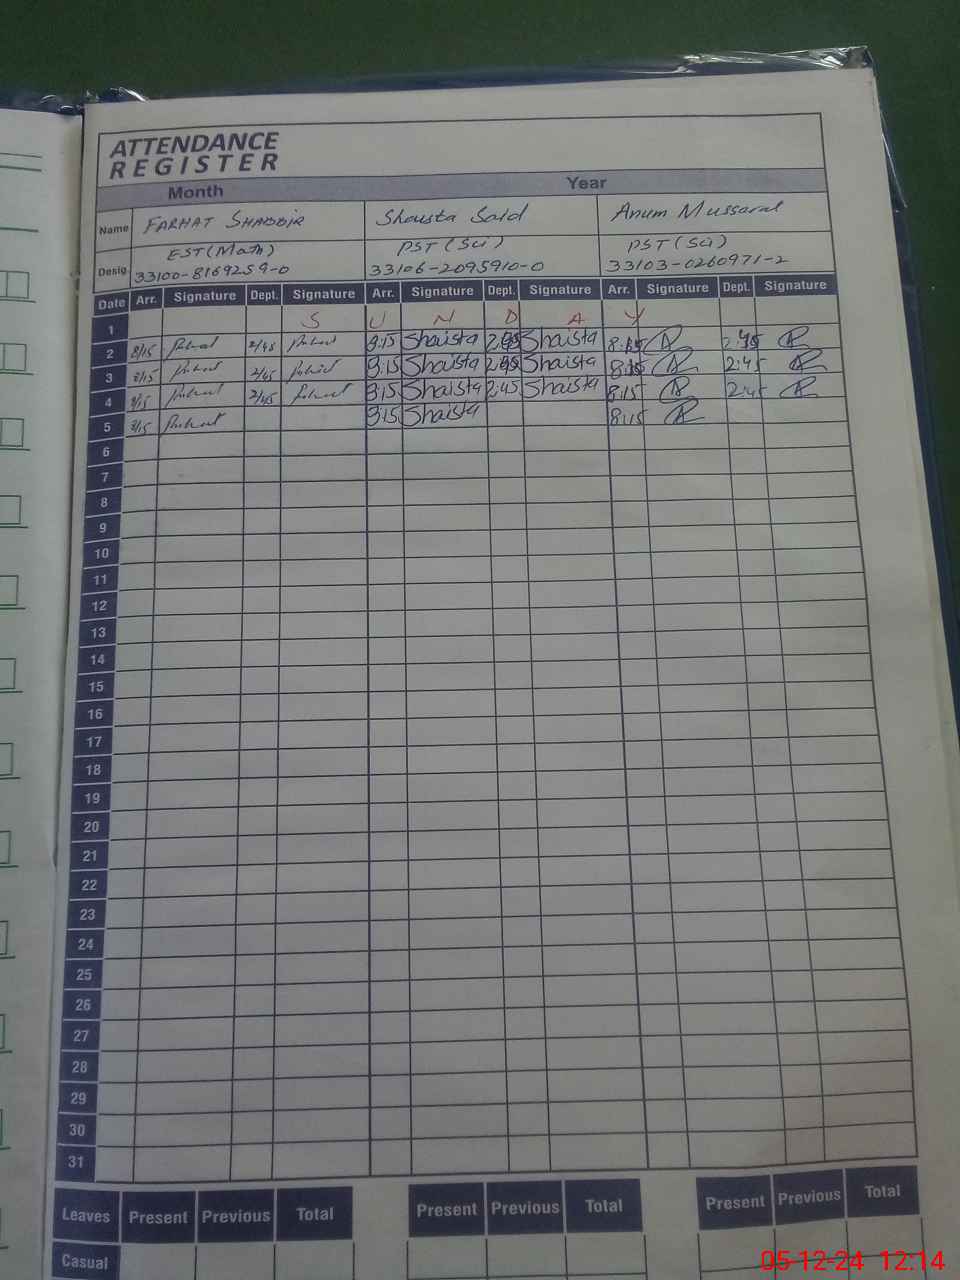 ATTENDANCE
REGISTER
Month Year
Name FARHAT SHABBIR Shaista Said Anum Mussarat
Desig. EST(Math) PST(Sci) PST(Sci)
33100-8169259-0 33106-2095910-0 33103-0260971-2
Date Arr. Signature Dept. Signature Arr. Signature Dept. Signature Arr. Signature Dept. Signature
1 S U N D A Y
2 8/15 2/45 Shaista Shaista 2:45
3 8/15 2/45 Shaista Shaista 8:15 2:45
4 8/15 2/45 Shaista 2:45 Shaista 8:15 2:45
5 8/15 Shaista 8:15
6
7
8
9
10
11
12
13
14
15
16
17
18
19
20
21
22
23
24
25
26
27
28
29
30
31
Leaves Present Previous Total Present Previous Total Present Previous Total
Casual
05-12-24 12:14